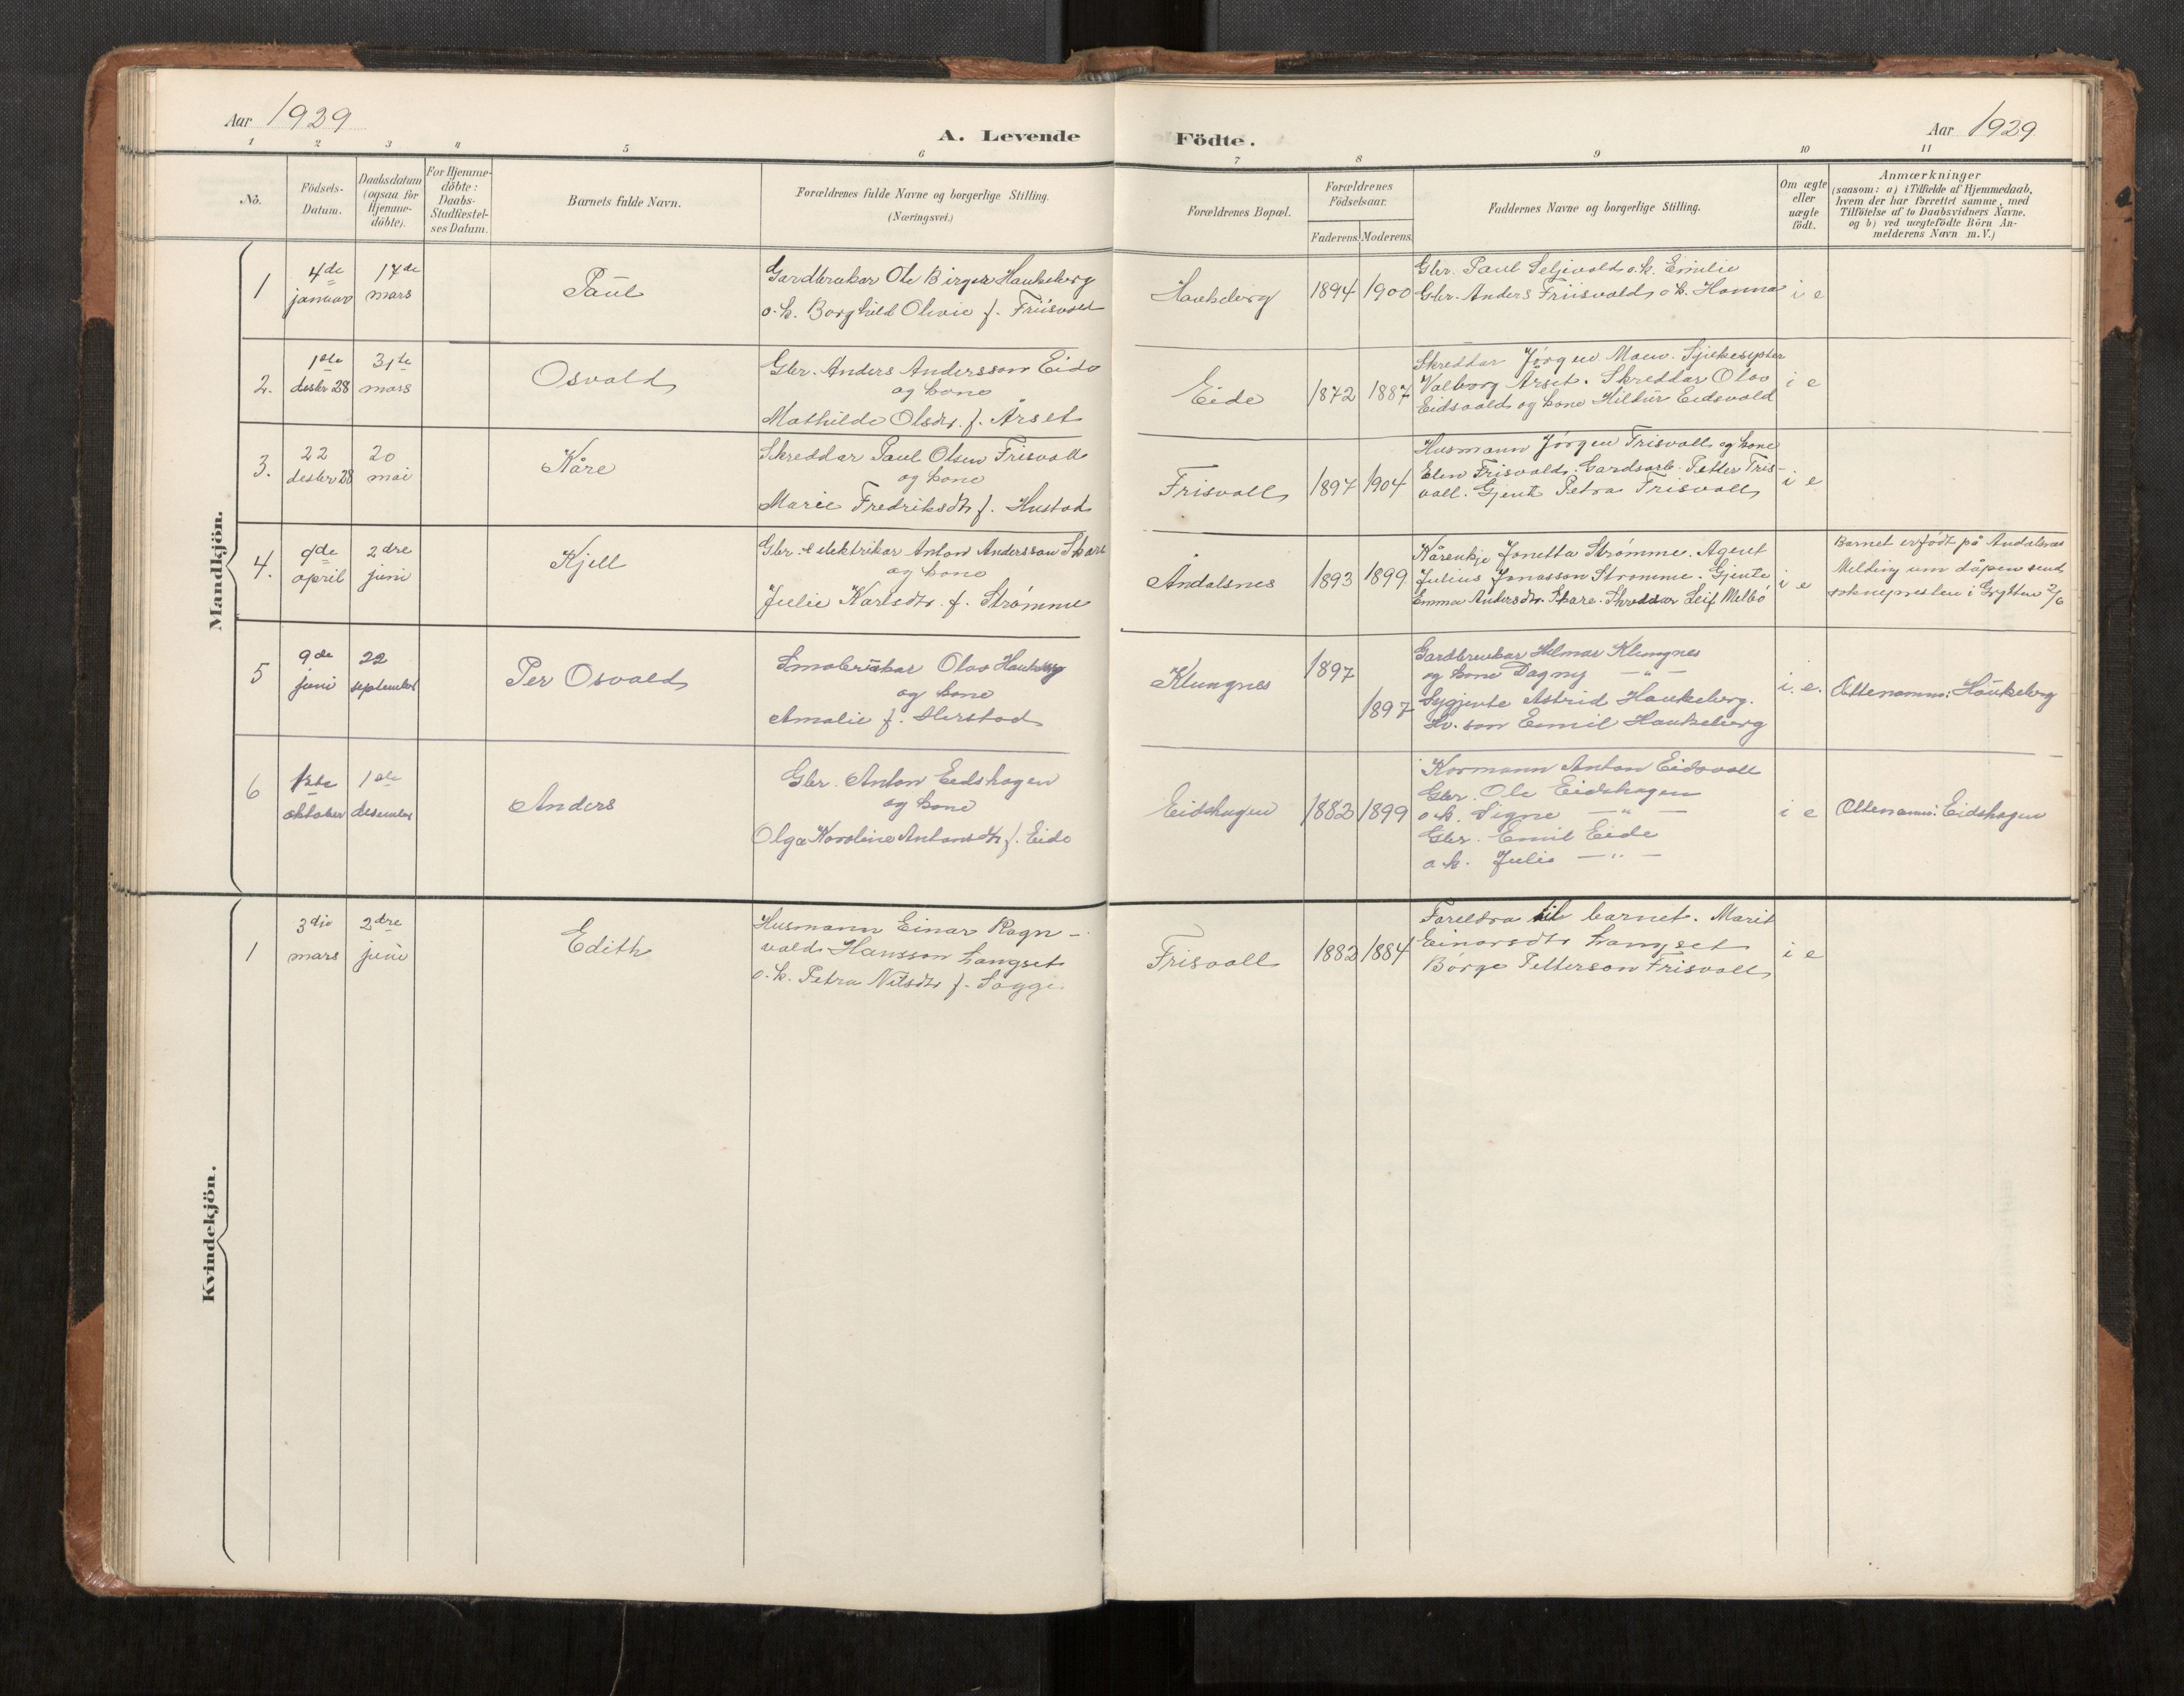 Aar 1929
A. Levende
1 2 3 4 5 6
Nô.
Födsels-
Datum.
Daabsdatum
(ogsaa for
Hjemme-
döbte).
For Hjemme-
döbte:
Daabs-
Stadfæstel-
ses Datum.
Barnets fulde Navn.
Forældrenes fulde Navne og borgerlige Stilling.
(Næringsvei.)
Mandkjön.
1
4de
januar
17de
mars
Paul
Gardbrukar Ole Birger Haukeberg
o. k. Borghild Olivie f. Friisvold
2.
1ste
desbr 28
31te
mars
Osvald
Gbr. Anders Andersson Eide
og kone
Mathilde Olsdtr. f. Årset
3.
22
desbr 28
20
mai
Kåre
Skreddar Paul Olsen Frisvoll
og kone
Marie Fredriksdtr f. Hustad
4.
9de
april
2dre
juni
Kjell
Gbr. & elektrikar Anton Andersson Skare
og kone
Julie Karlsdtr. f. Strømme
5
9de
juni
22
september
Per Osvald
Småbrukar Olav Haukeberg
og kone
Amalie f. Herstad
6
oktober
1ste
desember
Anders
Gbr. Anton Eidshagen
og kone
Olga Karoline Antonsdtr f. Eide
Kvindekjön.
1
3die
mars
2dre
juni
Edith
Husmann Einar Ragn-
vald Hansson Langset
o. k. Petra Nilsdtr f. Sogge
Födte.
Aar 1929.
7 8 9 10 11
Forældrenes Bopæl.
Forældrenes
Födselsaar.
Faderens. Moderens.
Faddernes Navne og borgerlige Stilling.
Om ægte
eller
uægte
födt.
Anmærkninger
(saasom: a) i Tilfælde af Hjemmedaab,
hvem der har forrettet samme, med
Tilföielse af to Daabsvidners Navne,
og b) ved uægtefödte Börn An-
melderens Navn m.V.)
Haukeberg
1894 1900
Gbr. Paul Seljevold o. k. Emilie
Gbr. Anders Friisvold o k. Hanna
i e
Eide
1872 1887
Skreddar Jørgen Moen. Sjukesyster
Valborg Årset. Skreddar Olav
Eidsvold og kone Hildur Eidsvold
i e
Frisvoll
1897 1904
Husmann Jørgen Frisvoll og kone
Elen Frisvold. Gardsarb. Petter Fris-
voll. Gjent. Petra Frisvoll
i e
Åndalsnes
1893 1899
Kårenkje Jonetta Strømme. Agent
Julius Jonasson Strømme. Gjente
Emma Andersdtr. Skare. Skreddar Leif Melbö
i e
Barnet er født på Åndalsnes
Melding um dåpen send
soknepresten i Grytten 2/6
Klungnes
1897
1897
Gardbrukar Hilmar Klungnes
og kone Dagny — " —
Sygjente Astrid Haukeberg.
Gbr. son Emil Haukeberg
i. e.
Ættenamn: Haukeberg
Eidshagen
1882 1899
Kårmann Anton Eidsvoll
Gbr. Ole Eidshagen
o. k. Signe — " —
Gbr. Emil Eide
o. k. Julie — " —
i e
Ættenamn: Eidshagen
Frisvoll
1882 1884
Foreldra til barnet. Marit
Einarsdtr Langset
Børge Petterson Frisvoll
i e